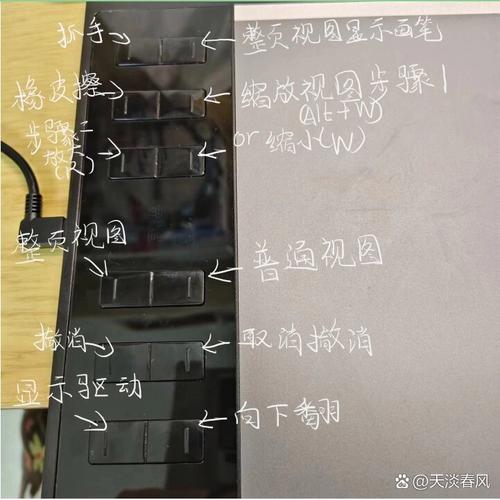 抓手 整页视图显示画笔
橡皮擦 缩放视图步骤1
(Alt+W)
步骤二 or 缩小(W)
整页视图
普通视图
撤消 取消撤消
显示驱动
向下翻
@天淡春风